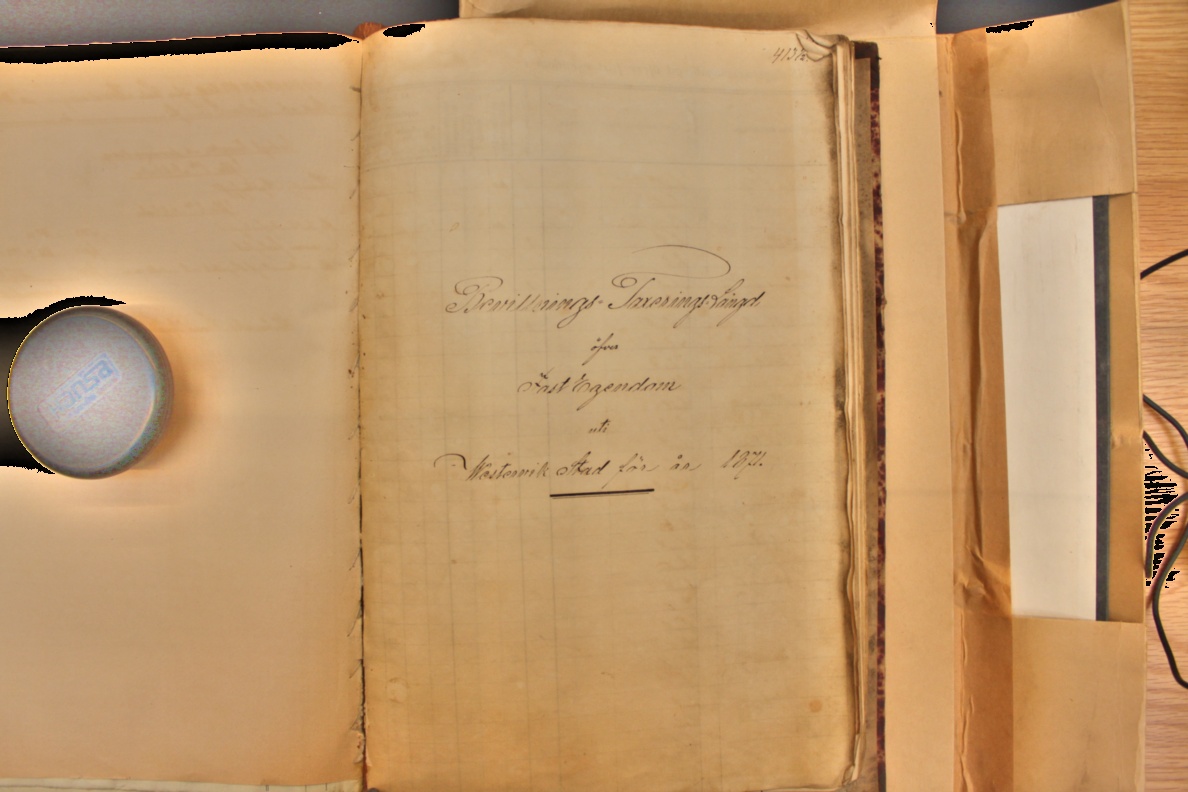 Bevillnings- Taxerings-Längd
öfver
Fast Egendom
uti
Westervik Stad för år 1871.